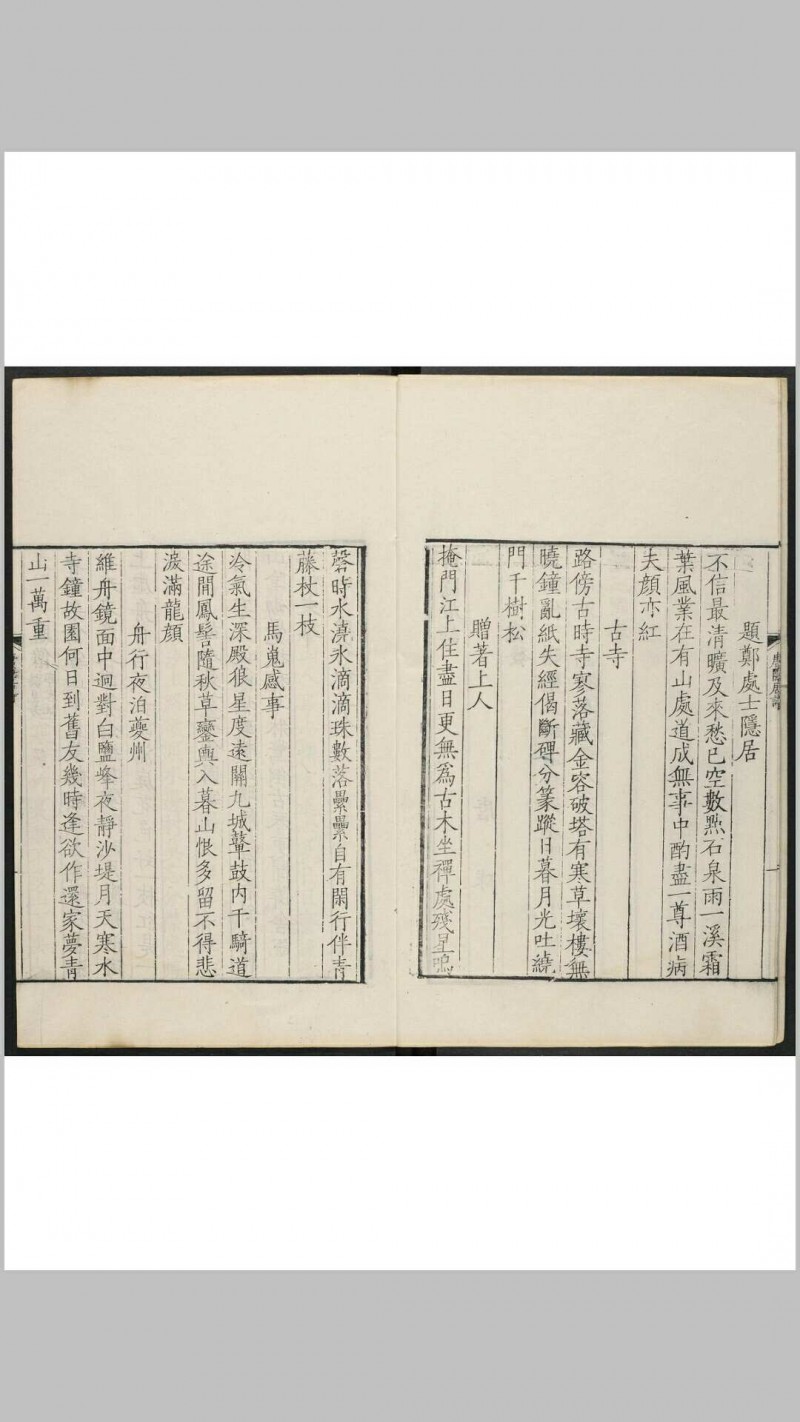 題鄭處士隱居
不信最清曠及來愁已空數㸃石泉雨一溪霜
葉風業在有山處道成無事中酌盡一尊酒病
夫顔亦紅
古寺
路傍古時寺寥落藏金容破塔有寒草壞樓無
曉鐘亂紙失經偈斷碑分篆蹤日暮月光吐繞
門千樹松
贈著上人
掩門江上住盡日更無爲古木坐禪處殘星鳴
磬時水淥氷滴滴珠數落纍纍自有閑行伴青
藤杖一枝
馬嵬感事
冷氣生深殿狼星度遠關九城鼙鼓内千騎道
途間鳳髻隨秋草鑾輿入暮山恨多留不得悲
淚滿龍顔
舟行夜泊夔州
維舟鏡面中迥對白鹽峰夜靜沙堤月天寒水
寺鐘故園何日到舊友幾時逢欲作還家夢青
山一萬重